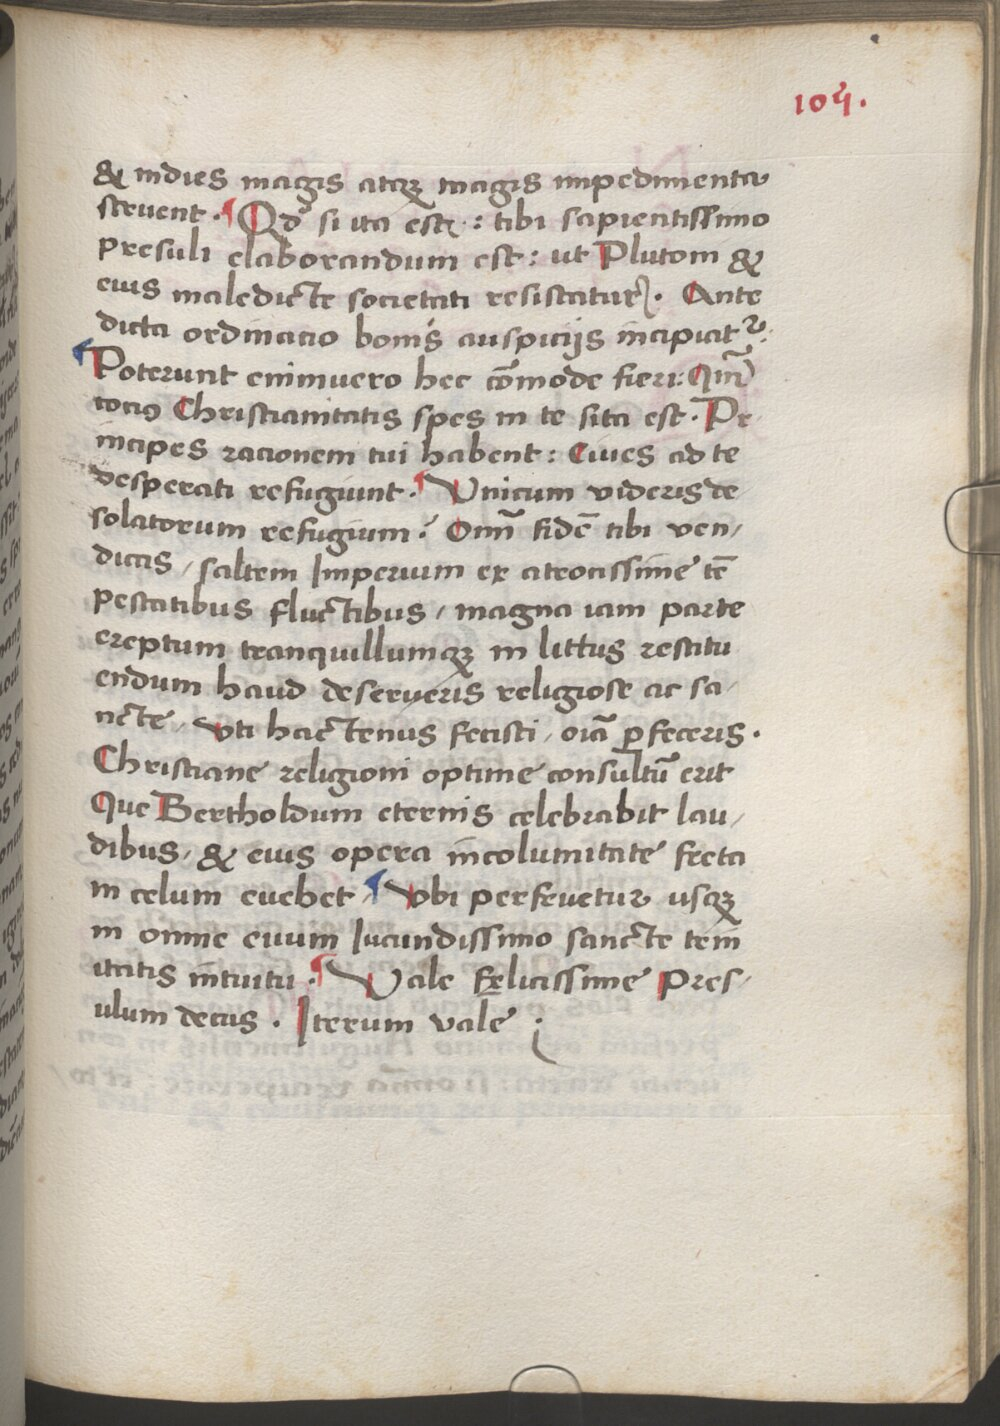 105.
& indies magis atqꝫ magis impedimenta
struent. Qd' si ita est: tibi sapientissimo
presuli elaborandum est: ut Plutoni &
eius maledicte societati resistatur. Ante
dicta ordinacio bonis auspicijs incipiatꝛ.
Poterunt enimuero hec cōmode fieri: Qm̄
tociꝰ Christianitatis spes in te sita est. Pr
incipes racionem tui habent: Ciues ad te
desperati refugiunt. Vnicum videris de
solatorum refugium? Om̄ fidē tibi ven/
dicas, saltem Imperium ex atrocissime tē
pestatibus fluctibus, magna iam parte
ereptum tranquillumqꝫ in littus restitu
endum haud deserueris religiose ac sa/
ncte, vti hactenus fecisti, oīa ꝑfeceris.
Christiane religioni optime consultū erit
Que Bertholdum eternis celebrabit lau/
dibus, & eius opera incolumitate freta
in celum euehet, Vbi perfruetur usqꝫ
in omne euum Iucundissimo sancte trin
itatis intuitu. Vale Felicissime Pres/
ulum decus. Iterum vale :